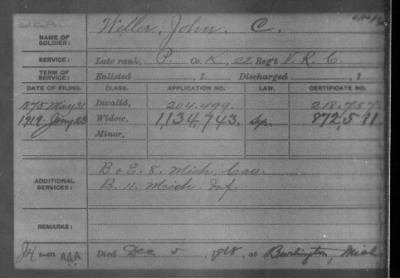 NAME OF SOLDIER: Weller, John C.
SERVICE: Late rank, P. Co. K, 22 Reg't V. R. C.
TERM OF SERVICE: Enlisted , 1 Discharged , 1
DATE OF FILING. CLASS. APPLICATION NO. LAW. CERTIFICATE NO.
1875 May 31 Invalid, 204.499. 218.757
1919 Jany 23 Widow, 1,134,743. 872,591
Minor,
ADDITIONAL SERVICES: B & E. 8. Mich Cav.
B. 11. Mich. Inf.
REMARKS:
Died Dec 5, 1918, at Burlington, Mich